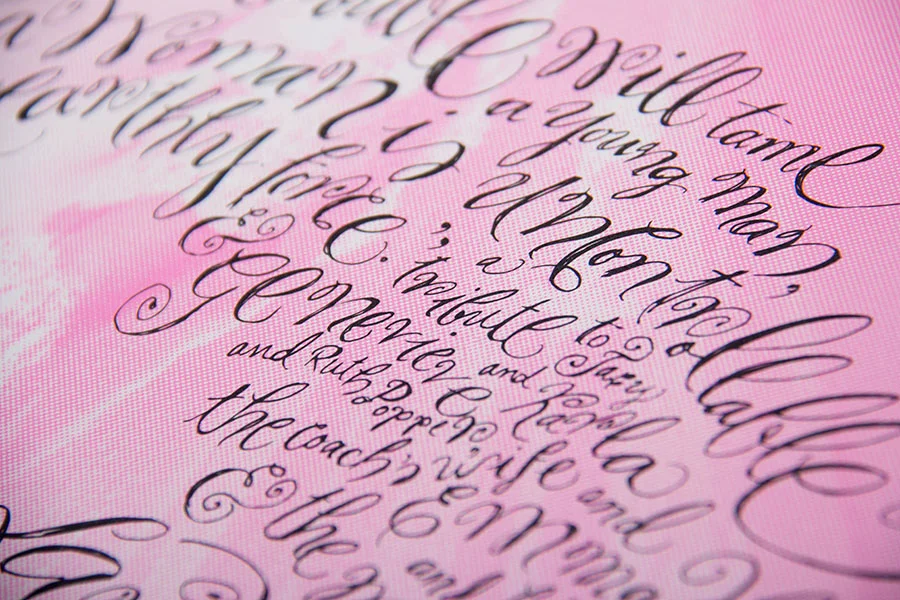 will tame
a young man,
a Woman is uncontrollable
earthly force,
a tribute to
& Genevieve and Karla
and Ruth Popper
the coach's wife and
& the
and